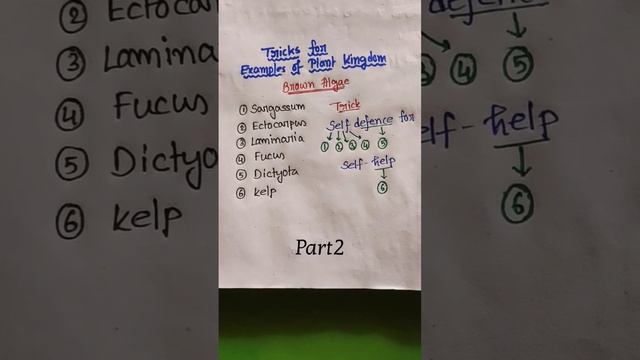 Tricks for
Examples of Plant Kingdom
Brown Algae
① Sargassum
② Ectocarpus
③ Laminaria
④ Fucus
⑤ Dictyota
⑥ kelp
Trick
Self defence for
① ② ③ ④ ⑤
self-help
⑥
Part2
② Ectoca
③ Lamina
④ Fucus
⑤ Dictyo
⑥ kelp
defence
③ ④ ⑤
elf-help
⑥